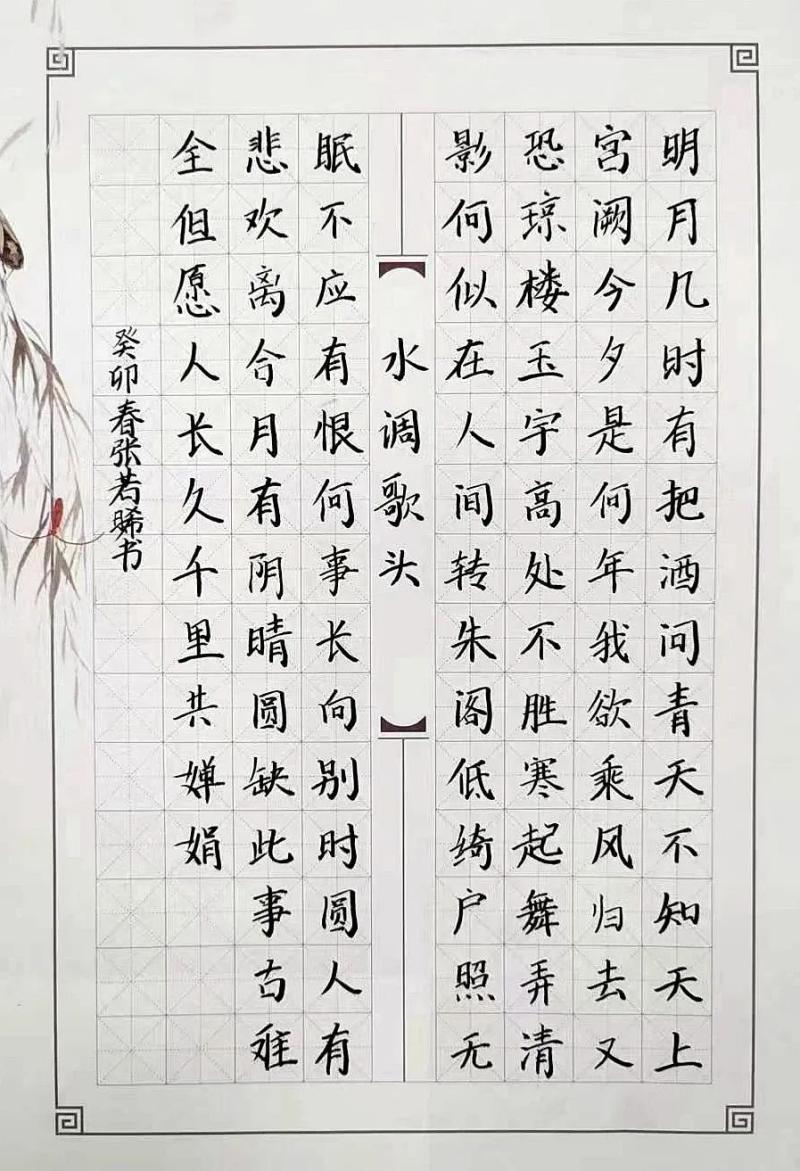 明月几时有把酒问青天不知天上
宫阙今夕是何年我欲乘风归去又
恐琼楼玉宇高处不胜寒起舞弄清
影何似在人间转朱阁低绮户照无
水调歌头
眠不应有恨何事长向别时圆人有
悲欢离合月有阴晴圆缺此事古难
全但愿人长久千里共婵娟
癸卯春张若晞书